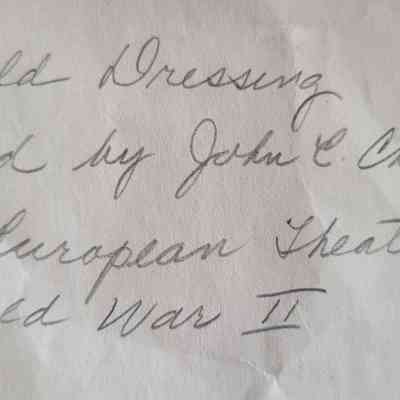 ld Dressing
d by John C. Ch
European Theat
ed War II